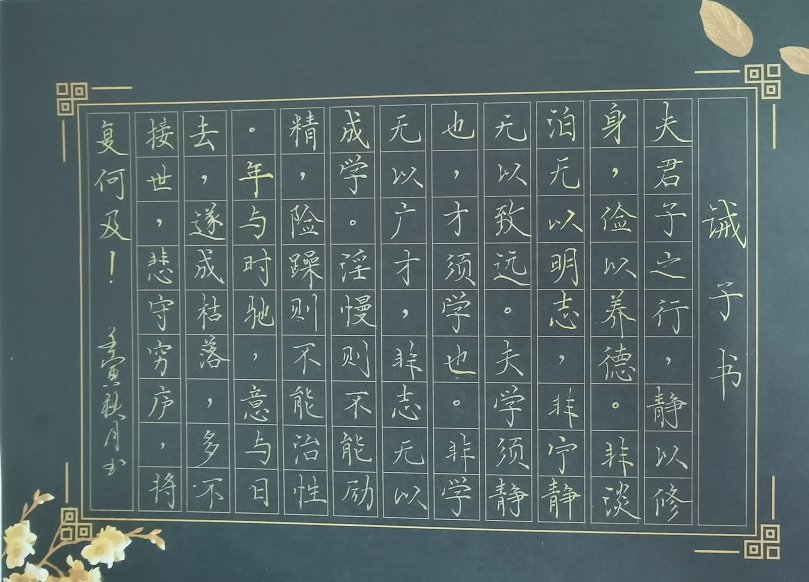 诫子书
夫君子之行，静以修
身，俭以养德。非淡
泊无以明志，非宁静
无以致远。夫学须静
也，才须学也。非学
无以广才，非志无以
成学。淫慢则不能励
精，险躁则不能治性
。年与时驰，意与日
去，遂成枯落，多不
接世，悲守穷庐，将
复何及！
壬寅秋月书